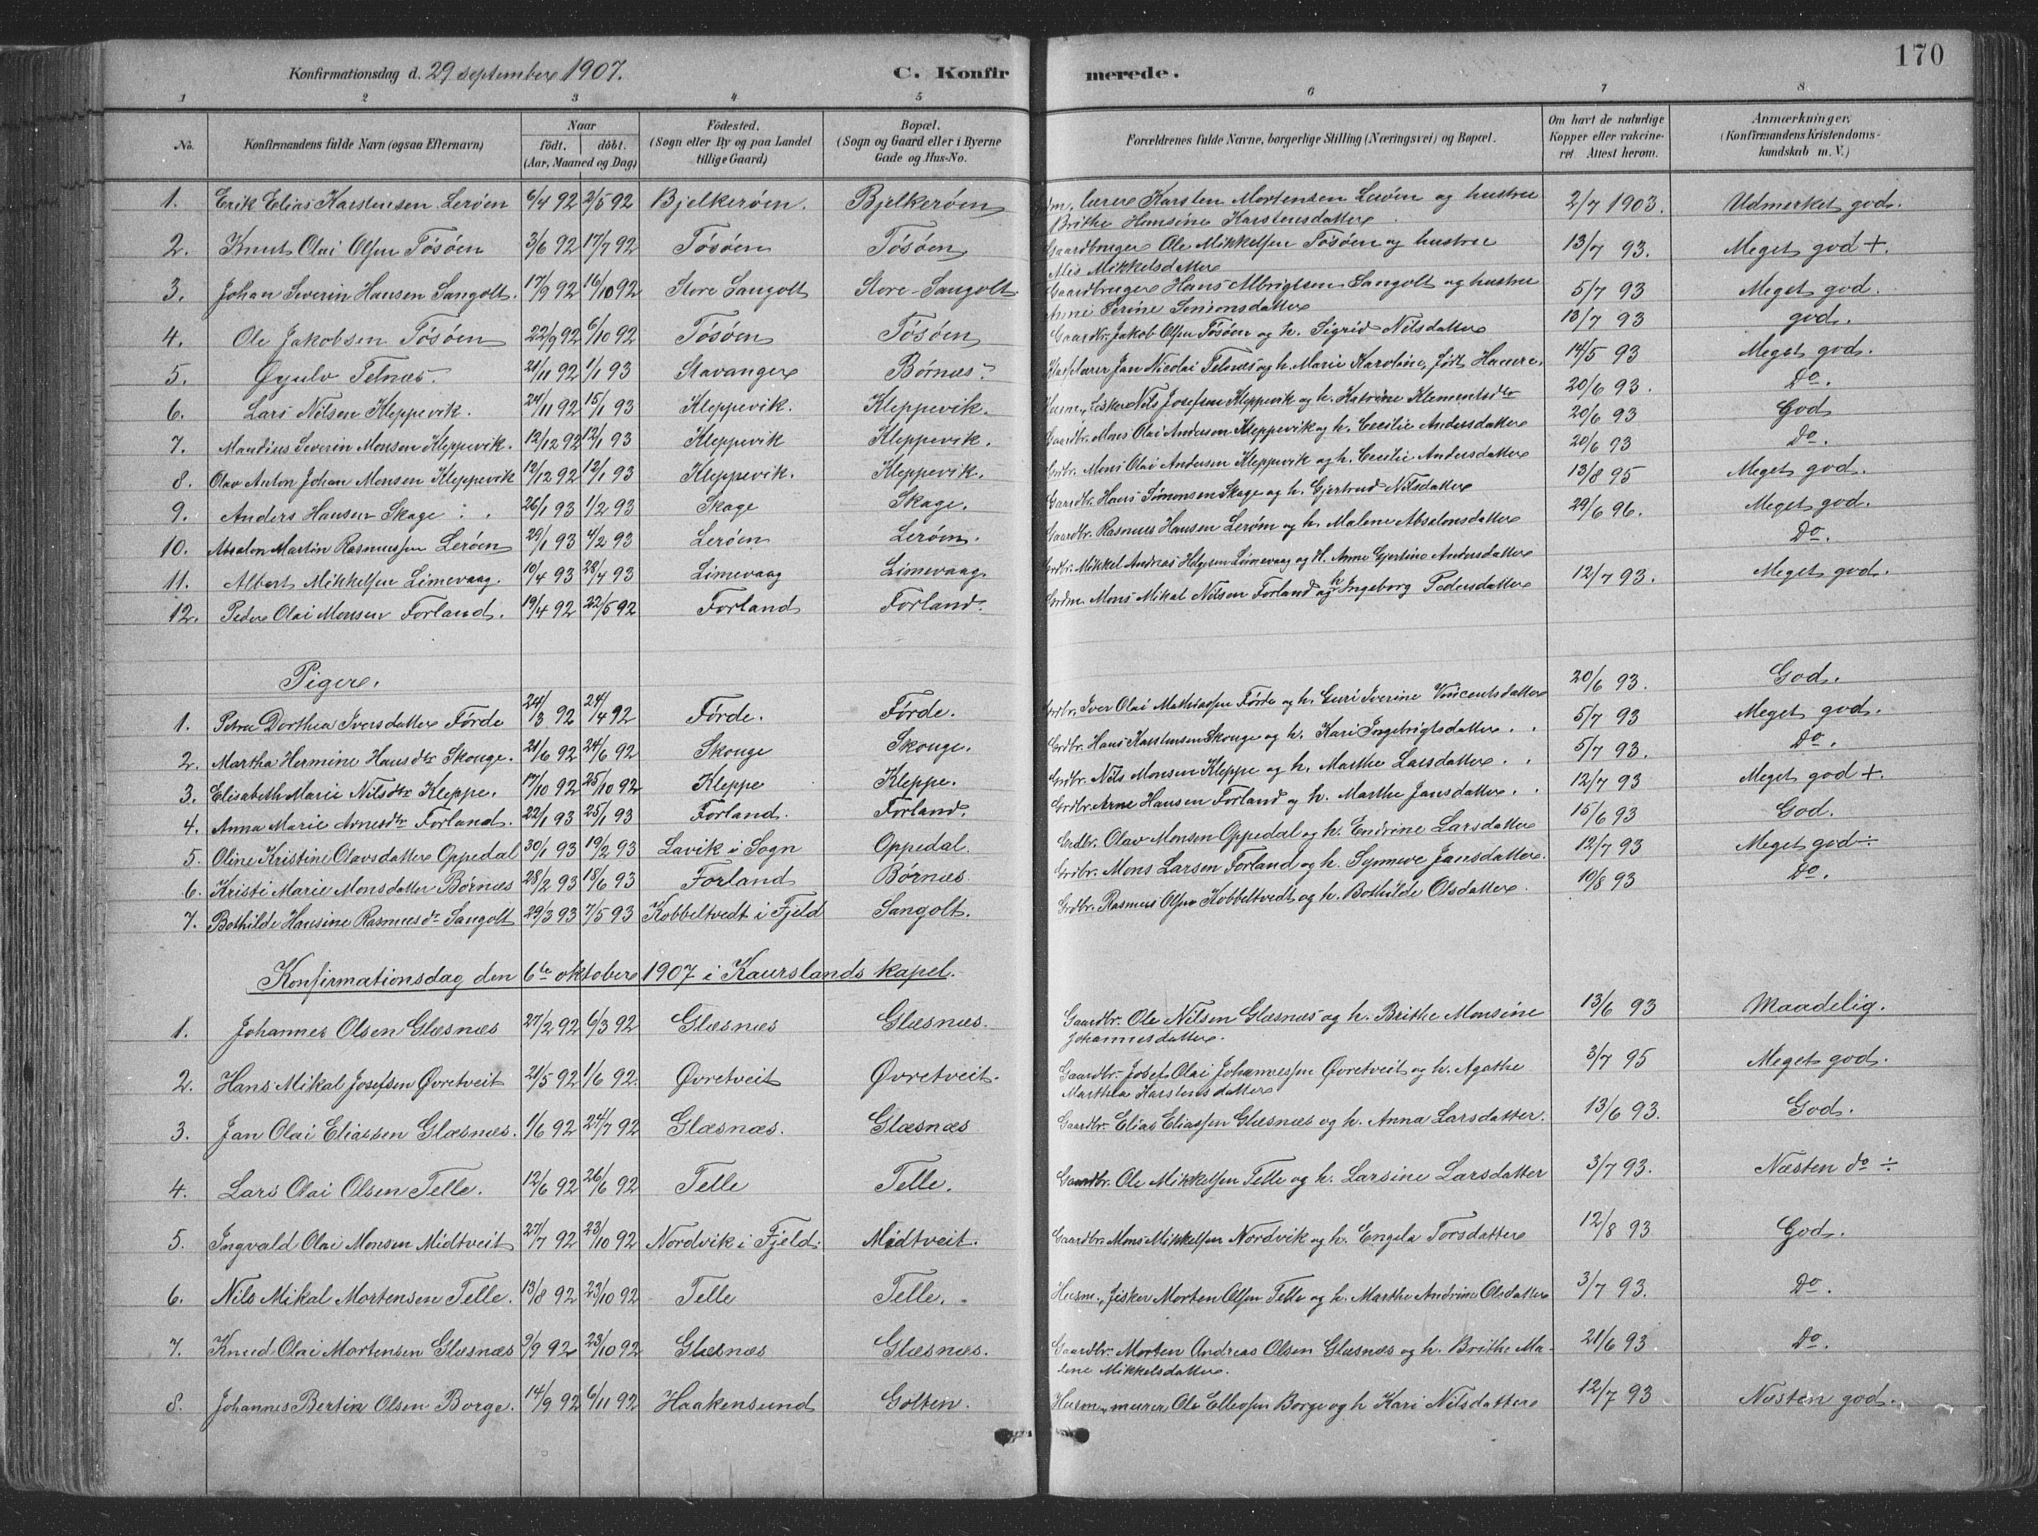 170
Konfirmationsdag d. 29 september 1907. C. Konfirmerede.
1 2 3 4 5 6 7 8
No. Konfirmandens fulde Navn (ogsaa Efternavn) Naar födt. döbt. (Aar, Maaned og Dag) Födested. (Sogn eller By og paa Landet tillige Gaard) Bopæl. (Sogn og Gaard eller i Byerne Gade og Hus-No. Forældrenes fulde Navne, borgerlige Stilling (Næringsvei) og Bopæl. Om havt de naturlige Kopper eller vakcineret Attest herom. Anmærkninger, (Konfirmandens Kristendomskundskab m. V.)
1. Erik Elias Karstensen Lerøen 6/4 92 2/5 92 Bjelkerøen. Bjelkerøen lærer Karsten Mortensen Lerøen og hustru 2/7 1903. Udmerket god.
Brithe Hansine Karstensdatter
2. Knut Olai Olsen Tøsøen 3/6 92 17/7 92 Tøsøen Tøsøen Gaardbruger Ole Mikkelsen Tøsøen og hustru 13/7 93. Meget god +.
Mikkelsdatter
3. Johan Severin Hansen Sangolt. 17/9 92 16/10 92 Store Sangolt Store-Sangolt Gaardbruger Hans Albrigtsen Sangolt og hustru 5/7 93 Meget god.
Anne Serine Simonsdatter
4. Ole Jakobsen Tøsøen 22/9 92 6/10 92 Tøsøen Tøsøen Gaardbr. Jakob Olsen Tøsøen og h. Sigrid Nilsdatter 13/7 93 god.
5. Øyulv Telnæs. 21/11 92 1/1 93 Stavanger Børnæs. Jan Nicolai Telnæs og h. Marie Karoline, født 14/5 93 Meget god.
6. Lars Nilsen Kleppevik. 24/11 92 15/1 93 Kleppevik. Kleppevik. Husm., fisker Nils Josefsen Kleppevik og h. Katrine Klementsdtr 20/6 93. Do.
7. Mandius Severin Monsen Kleppevik. 12/12 92 12/1 93 Kleppevik Kleppevik. Gaardbr. Mons Olai Andersen Kleppevik og h. Cecilie Andersdatter 20/6 93 God
8. Olav Anton Johan Monsen Kleppevik 12/12 92 12/1 93 Kleppevik. Kleppevik. Grdbr. Mons Olai Andersen Kleppevik og h. Cecilie Andersdatter 20/6 93 Do.
9. Anders Hansen Skage 26/1 93 1/2 93 Skage Skage. Gaardbr. Hans Simonsen Skage og h. Gjertrud Nilsdatter 13/8 95 Meget god.
10. Abselon Martin Rasmussen Lerøen 29/1 93 4/2 93 Lerøen Lerøen. Gaardbr. Rasmus Hansen Lerøen og h. Malene Abselonsdatter 29/6 96. Meget god.
11. Albert Mikkelsen Limevaag. 10/4 93 28/4 93 Limevaag Limevaag Grdbr. Mikkel Andreas Helgesen Limevaag og H. Anne Gjertine Andersdatter Do.
12. Peder Olai Monsen Forland. 19/4 92 22/5 92 Forland Forland. Grdm. Mons Mikal Nilsen Forland og h Ingeborg Pedersdatter 12/7 93. Meget god.
Piger.
1. Petra Dorthea Iversdatter Førde 24/3 92 24/4 92 Førde. Førde. Grdbr. Iver Olai Mathiassen Førde og h. Guri Iverine Vincentsdatter 20/6 93. God.
2. Martha Hermine Hansdtr Skouge. 21/6 92 24/6 92 Skouge Skouge. Grdbr. Hans Karstensen Skouge og h. Kari Ingebrigtsdatter 5/7 93 Meget god.
3. Elisabeth Marie Nilsdtr Kleppe. 17/10 92 25/10 92 Kleppe Kleppe. Grdbr. Nils Monsen Kleppe og h. Marthe Larsdatter 5/7 93. Do.
4. Anna Marie Arnesdtr Forland. 22/1 93 25/1 93 Forland. Forland. Grdbr. Arne Hansen Forland og h. Marthe Jansdatter 12/7 93 Meget god +.
5. Oline Kristine Olavsdatter Oppedal 30/1 93 19/2 93 Lavik i Sogn Oppedal. Grdbr. Olav Monsen Oppedal og h. Endrine Larsdatter 15/6 93 God.
6. Kristi Marie Monsdatter Børnæs 28/2 93 18/6 93 Forland Børnæs. Grdbr. Mons Larsen Forland og h. Synneve Jansdatter. 12/7 93 Meget god ÷
7. Bothilde Hansine Rasmusdr Sangolt 29/3 93 7/5 93 Kobbeltvedt i Fjeld Sangolt. Grdbr. Rasmus Olsen Kobbeltvedt og h. Bothilde Olsdatter. 10/8 93 Do.
Konfirmationsdag den 6te oktober 1907 i Kaurslands kapel.
1. Johannes Olsen Glæsnæs 27/2 92 6/3 92 Glæsnæs Glæsnæs. Gaardbr. Ole Nilsen Glæsnæs og h. Brithe Monsine 13/6 93 Maadelig.
Johannesdatter.
2. Hans Mikal Josefsen Øvretveit 21/5 92 1/6 92. Øvretveit Øvretveit. Gaardbr. Josef Olai Johannessen Øvretveit og h. Agathe 3/7 95 Meget god.
Marthea Karstensdatter
3. Jan Olai Eliassen Glæsnæs. 1/6 92 24/7 92 Glæsnæs. Glæsnæs Gaardbr. Elias Eliassen Glæsnæs og h. Anna Larsdatter. 13/6 93. God.
4. Lars Olai Olsen Telle. 12/6 92 26/6 92 Telle Telle. Gaardbr. Ole Mikkelsen Telle og h. Larsine Larsdatter 3/7 93. Næsten do ÷
5. Ingvald Olai Monsen Midtveit 27/7 92 23/10 92 Nordvik i Fjeld. Midtveit. Gaardbr. Mons Mikkelsen Nordvik og h. Engela Torsdatter 12/8 93 God.
6. Nils Mikal Mortensen Telle. 13/8 92 23/10 92 Telle Telle. Husm., fisker Morten Olsen Telle og h. Marthe Andrine Olsdatter 3/7 93. Do.
7. Knud Olai Mortensen Glæsnæs 9/9 92 23/10 92 Glæsnæs Glæsnæs. Gaardbr. Morten Andreas Olsen Glæsnæs og h. Brithe Ma- 21/6 93 Do
lene Mikkelsdatter.
8. Johannes Bertin Olsen Borge. 14/9 92 6/11 92 Haakensund Golten. Husm., murer Ole Ellevsen Borge og h Kari Nilsdatter 12/7 93 Næsten god.